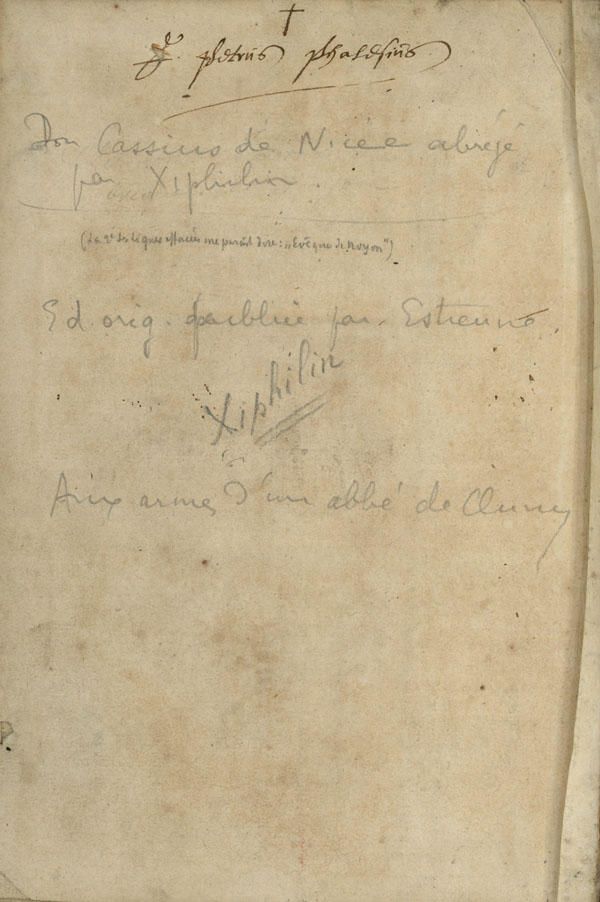 †
F. petrus phalesius
Don Cassius de Nicée abrégé
par Xiphilin.
(La 2e des lignes effacées me paraît dire : „Evêque de Noyon")
Ed. orig. publiée par Estienne.
Xiphilin
Aux armes d'un abbé de Cluny